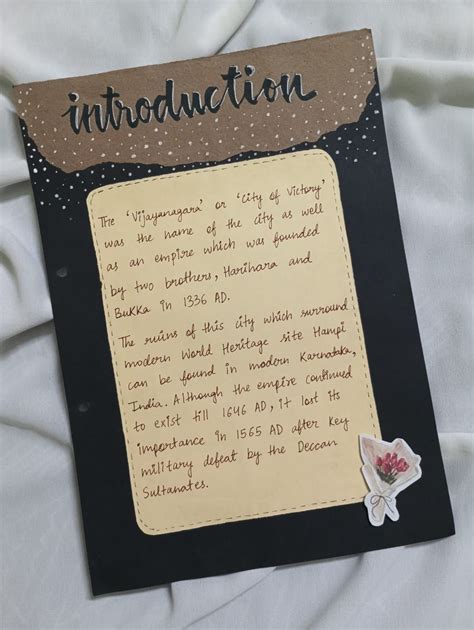 introduction
The 'Vijayanagara' or 'City of Victory'
was the name of the city as well
as an empire which was founded
by two brothers, Harihara and
Bukka in 1336 AD.
The ruins of this city which surround
modern World Heritage site Hampi
can be found in modern Karnataka,
India. Although the empire continued
to exist till 1646 AD, it lost its
importance in 1565 AD after key
military defeat by the Deccan
Sultanates.